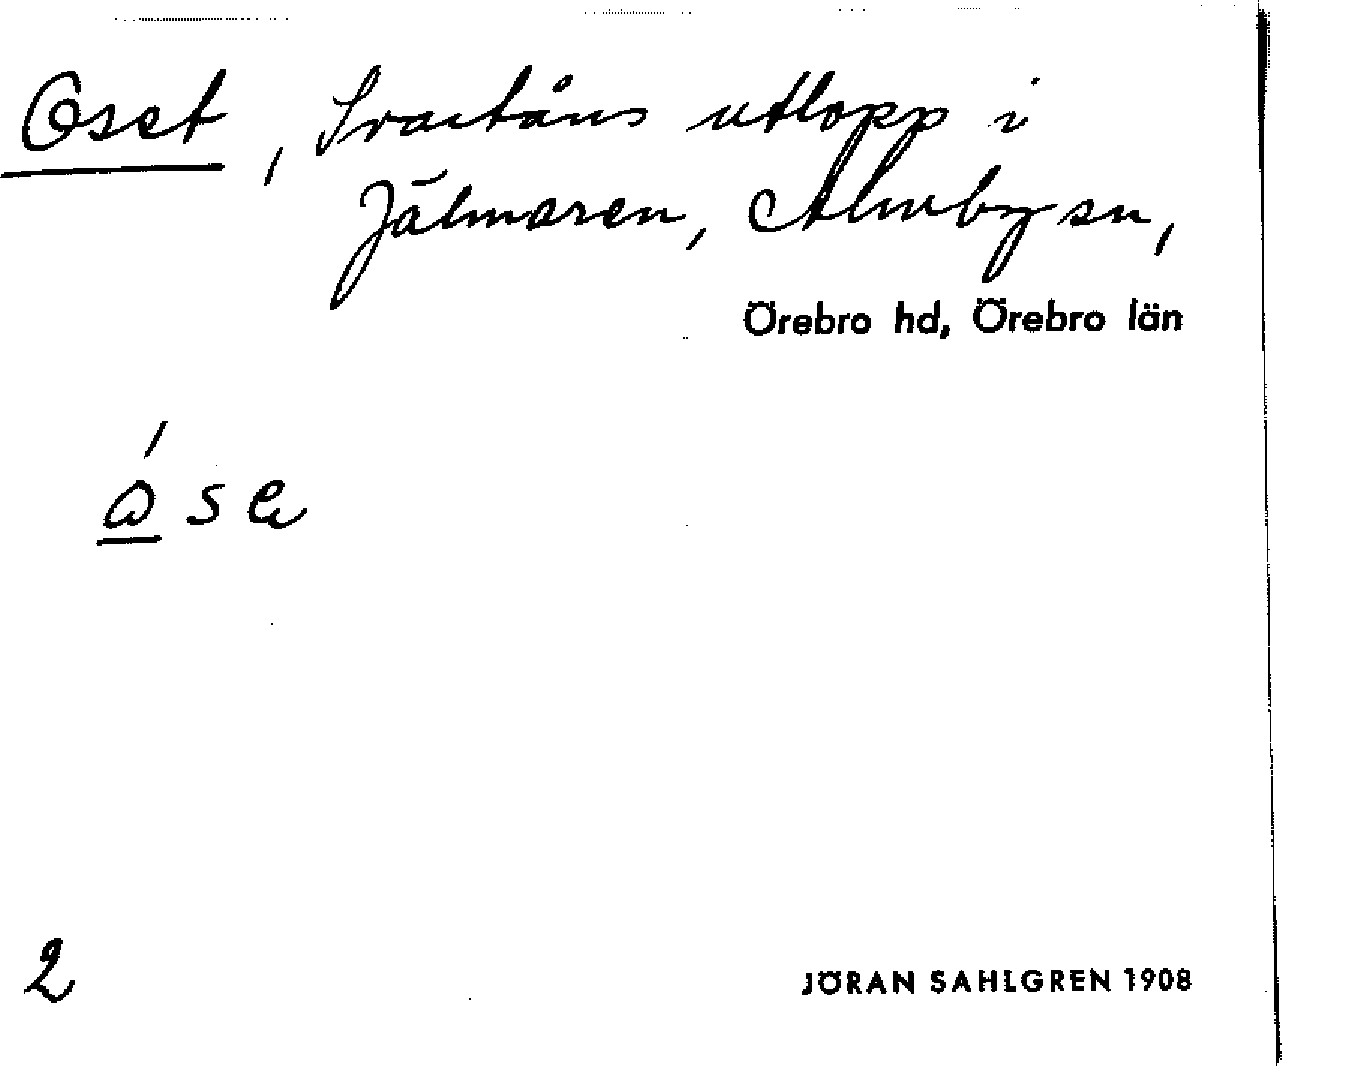 Oset, Svartåns utlopp i
Jälmaren, Almby sn,
Örebro hd, Örebro län
óse
2
JÖRAN SAHLGREN 1908